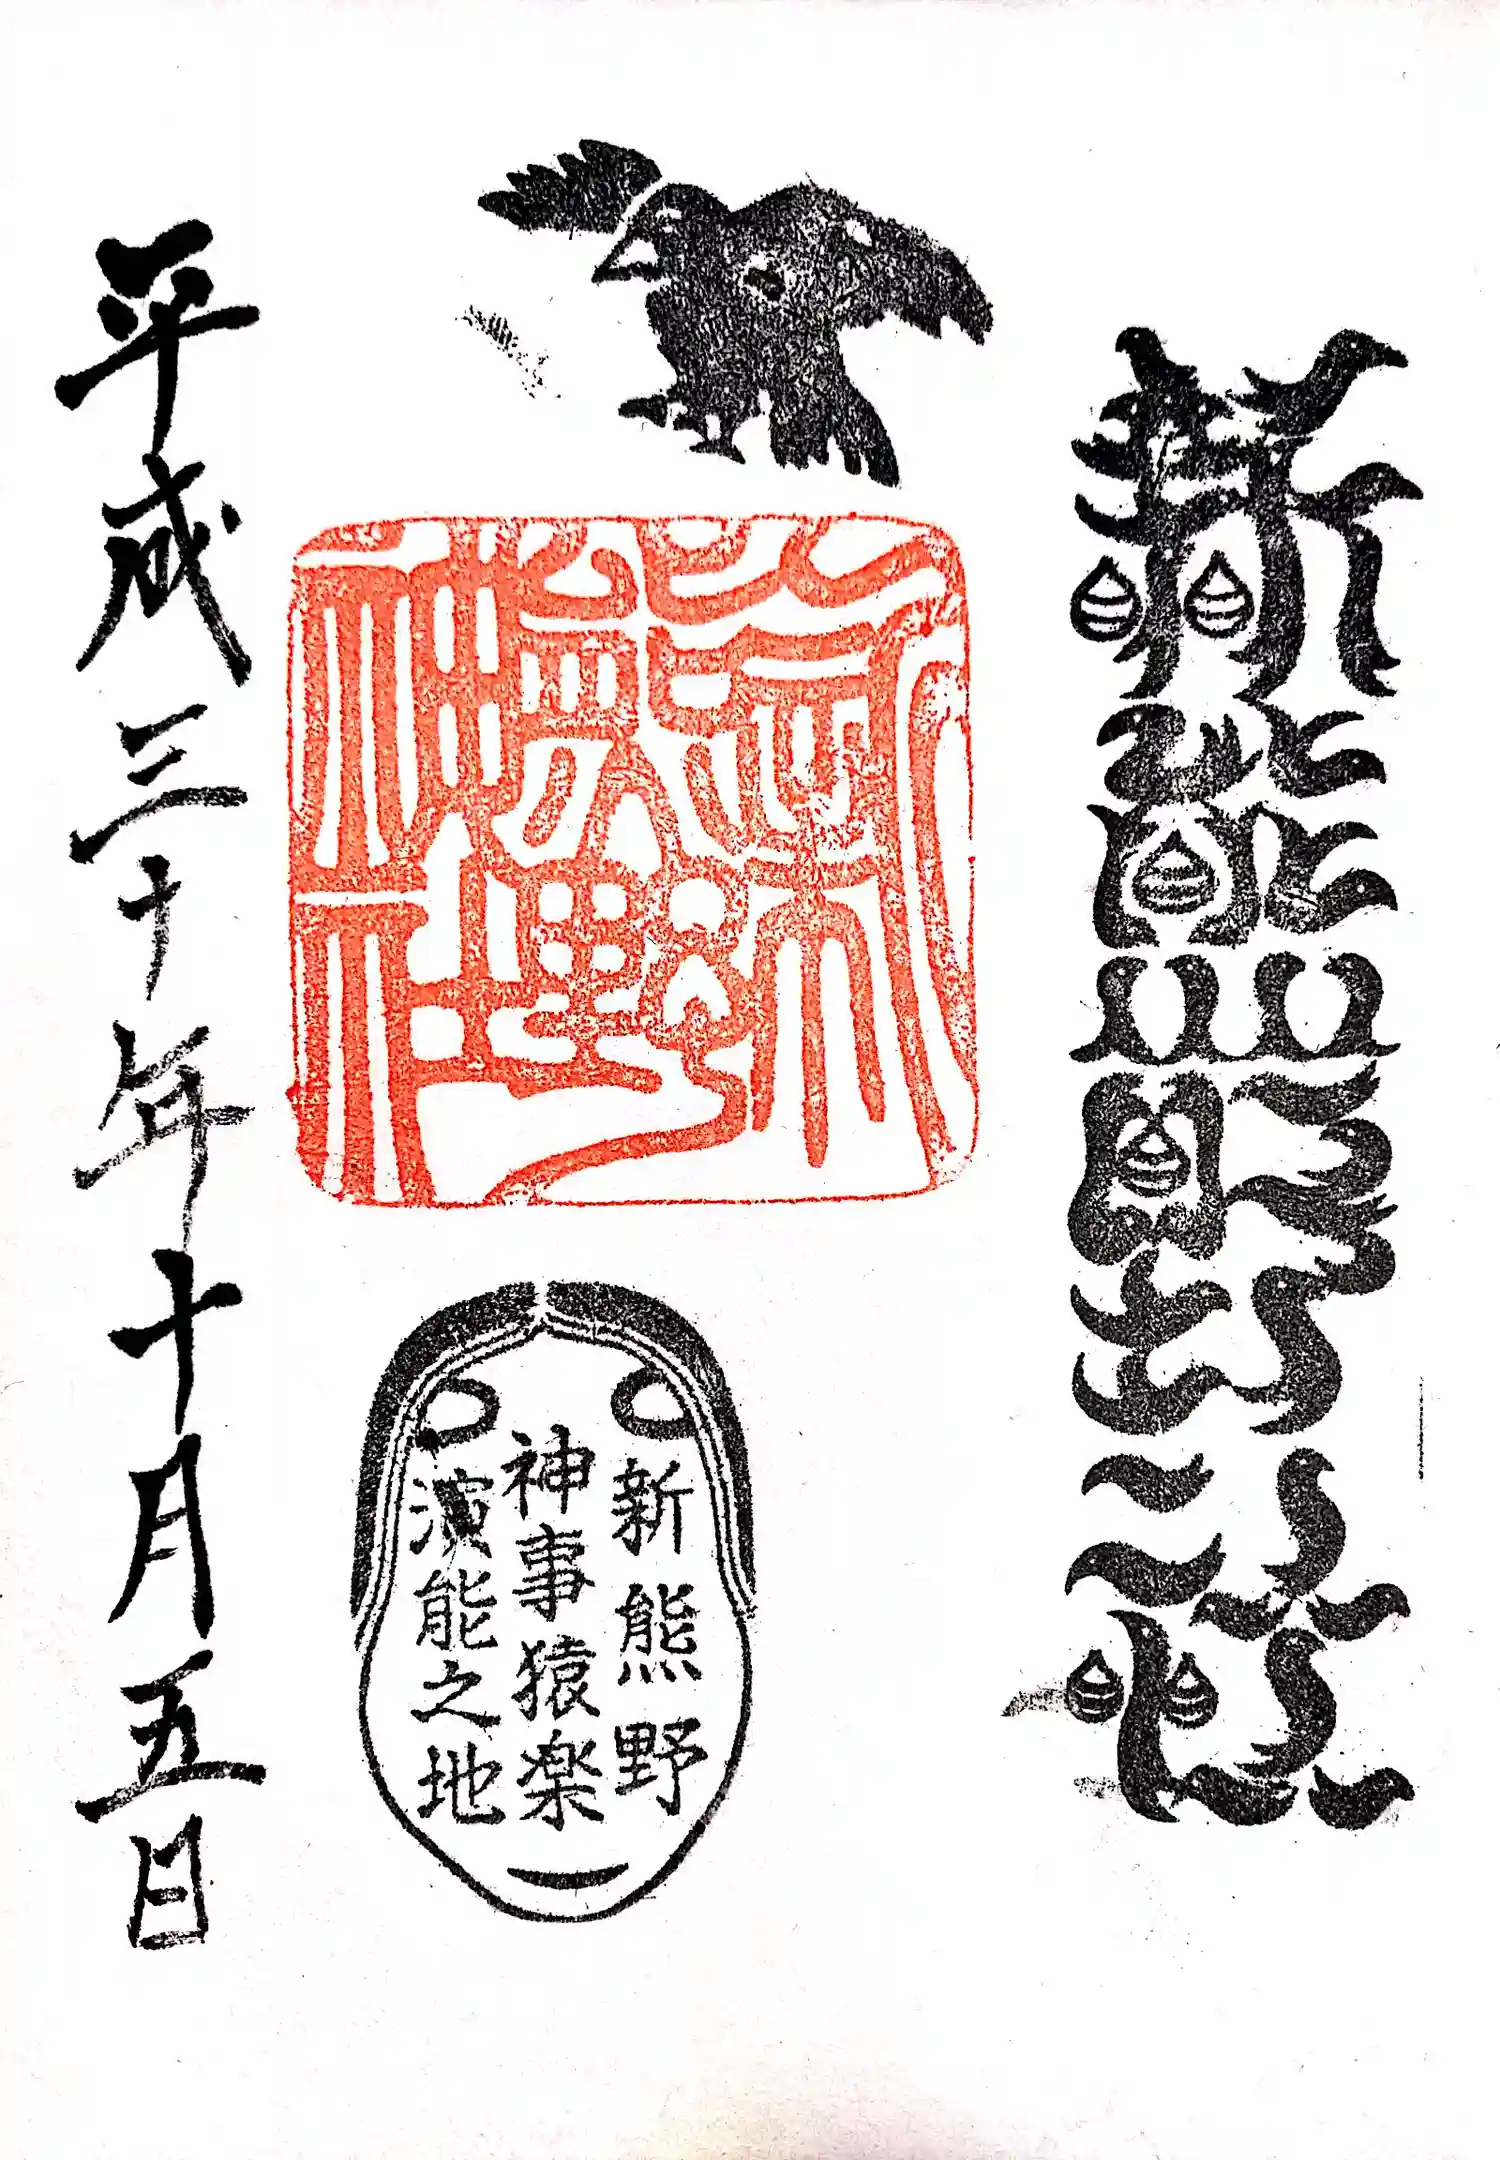 新熊野社
新熊野神社
新熊野
神事猿楽
演能之地
平成三十年十月五日